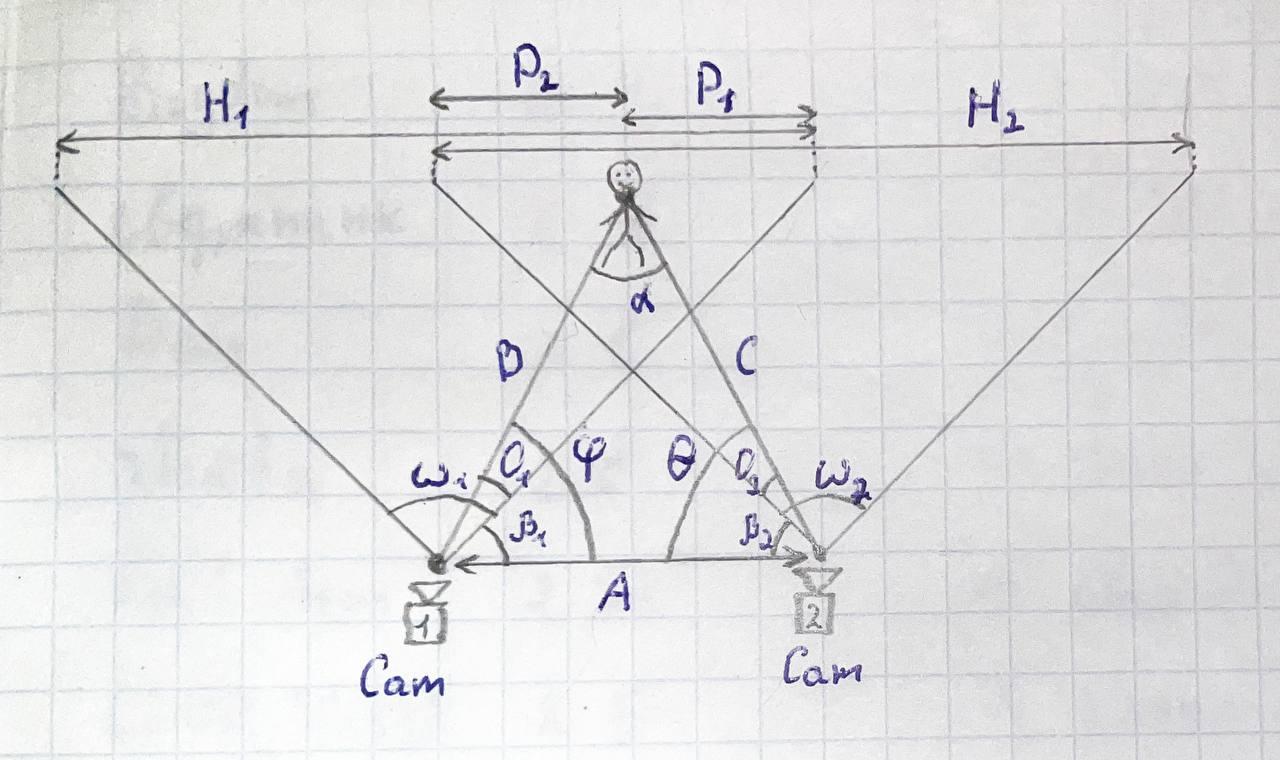 P₂
H₁ P₁ H₂
α
B C
ω₁ O₁ φ θ O₂ ω₂
β₁ β₂
A
1 2
Cam Cam